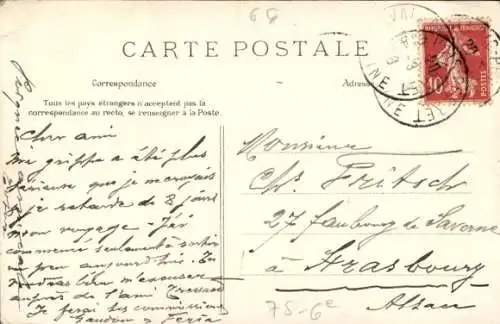 66
CARTE POSTALE
Correspondance
Adresse
Tous les pays étrangers n'acceptent pas la
correspondance au recto, se renseigner à la Poste.
REPUBLIQUE FRANÇAISE
10
POSTES
Cher ami
Ma grippe a été plus
sérieuse que je m'croyais
je retarde de 8 jours
mon voyage - J'ai
commencé seulement à sortir
un peu aujourd'hui. Tu
voudras bien m'excuser
auprès de l'ami
Je ferai les commissions
Monsieur
Ch. Fritsch
27 Faubourg de Saverne
à Strasbourg
Alsace
75-6e